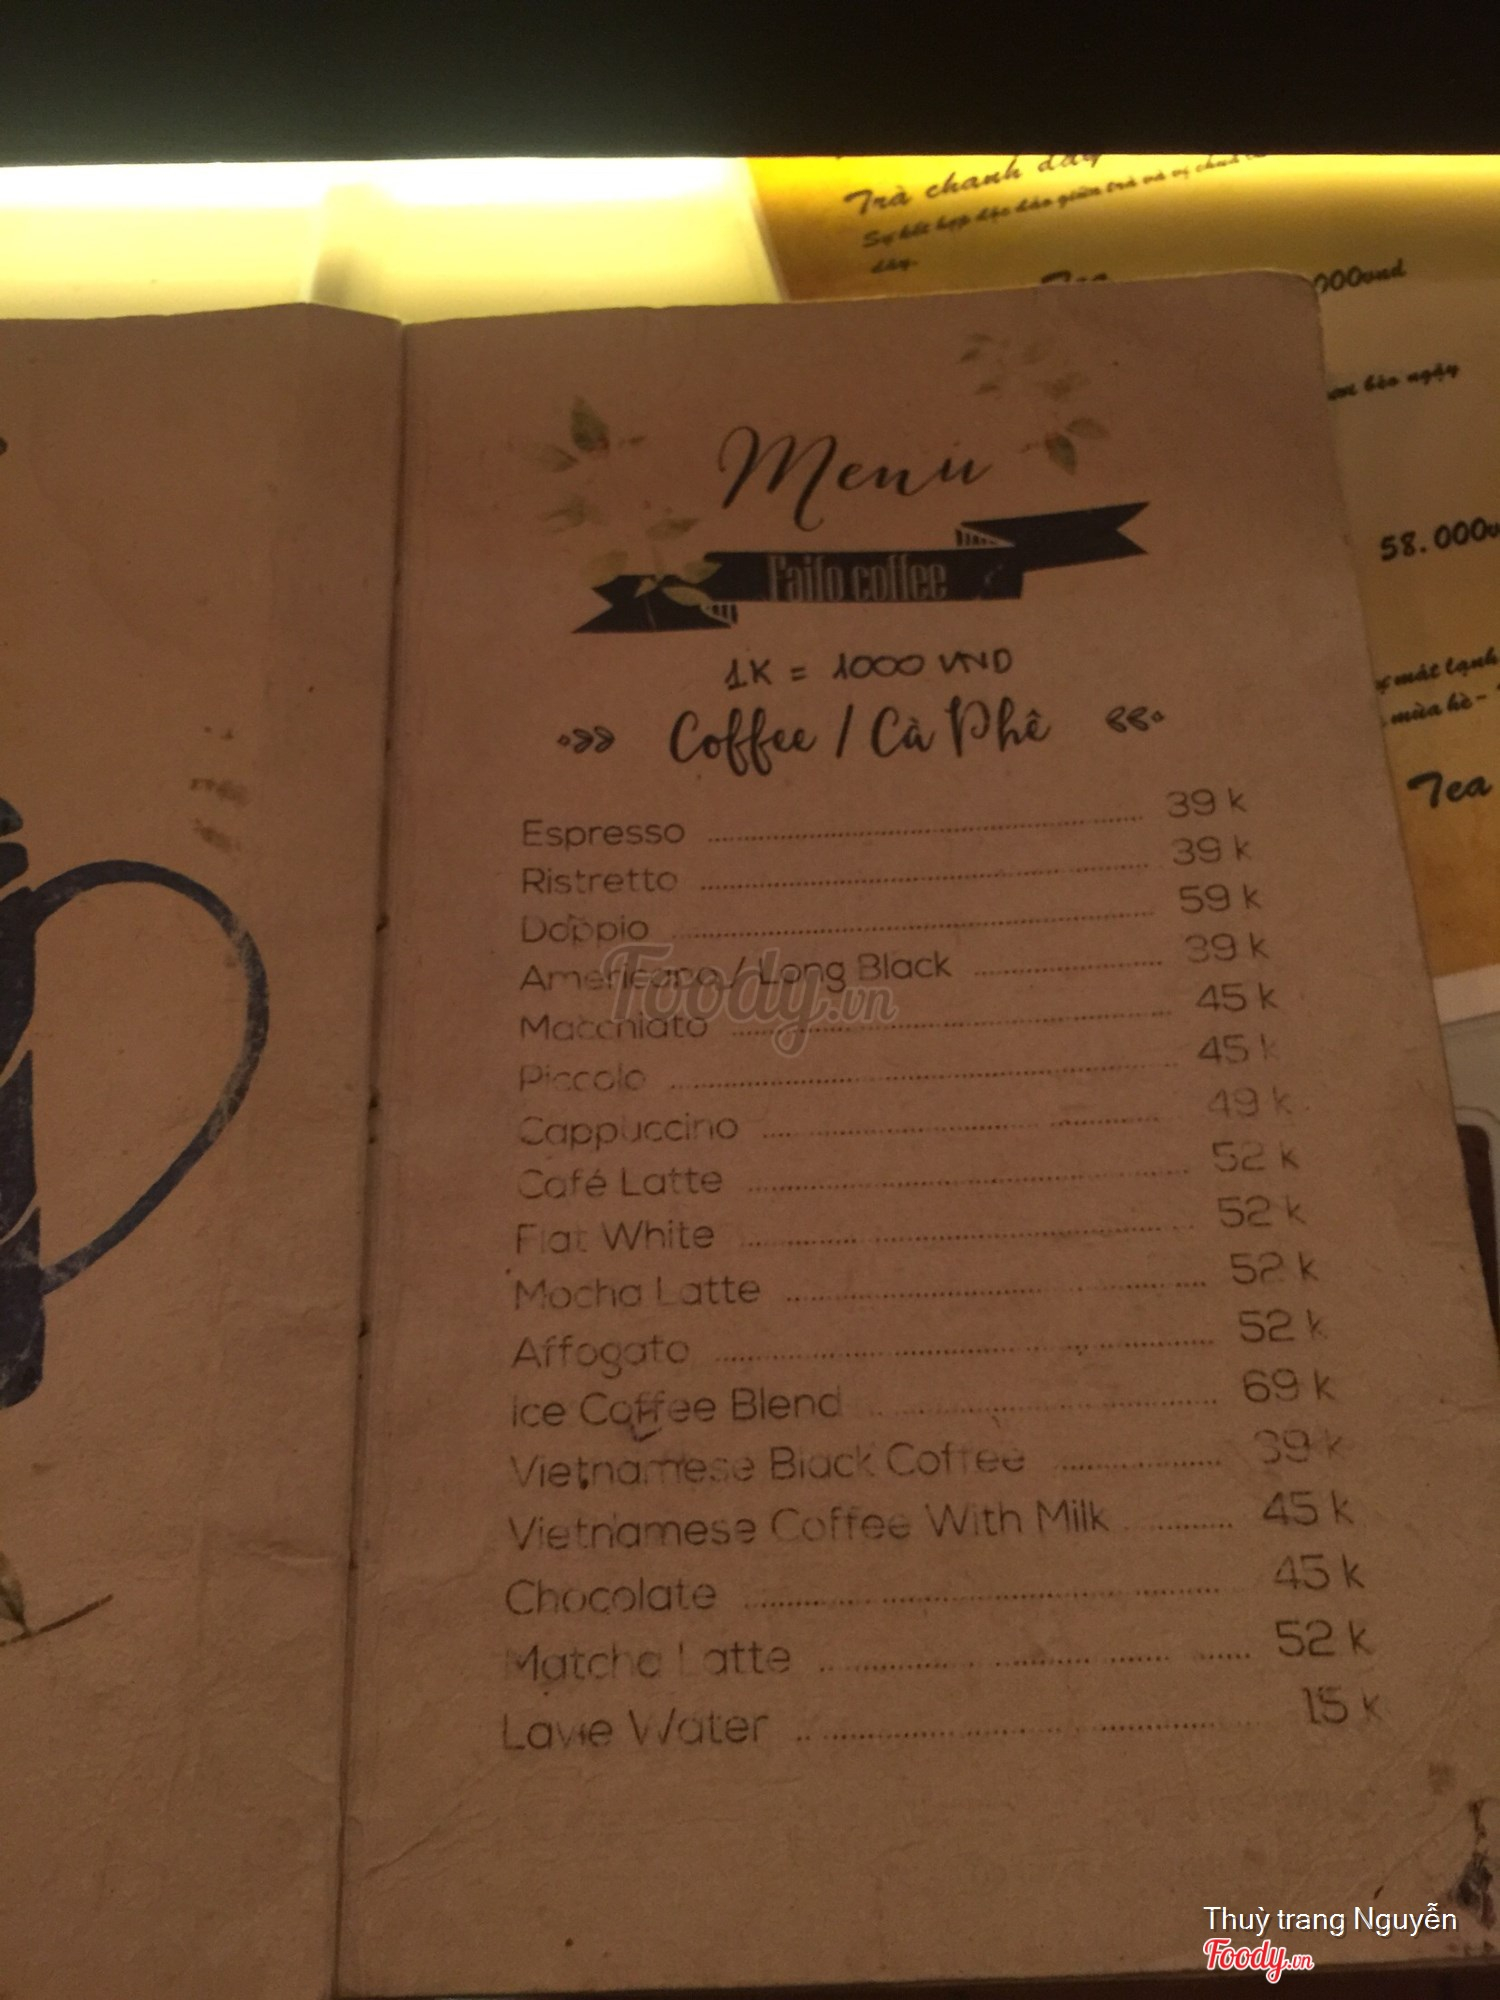 Trà chanh dây
Sự kết hợp độc đáo giữa trà và vị chua
dây.
Tea
000vnd
béo ngậy
58.000
mát lạnh
mùa hè -
Tea
Menu
Faifo coffee
1K = 1000 VND
Coffee / Cà Phê
Espresso 39 k
Ristretto 39 k
Doppio 59 k
Americano / Long Black 39 k
Macchiato 45 k
Piccolo 45 k
Cappuccino 49 k
Café Latte 52 k
Flat White 52 k
Mocha Latte 52 k
Affogato 52 k
Ice Coffee Blend 69 k
Vietnamese Black Coffee 39 k
Vietnamese Coffee With Milk 45 k
Chocolate 45 k
Matcha Latte 52 k
Lavie Water 15 k
Foody.vn
Thuỳ trang Nguyễn
Foody.vn